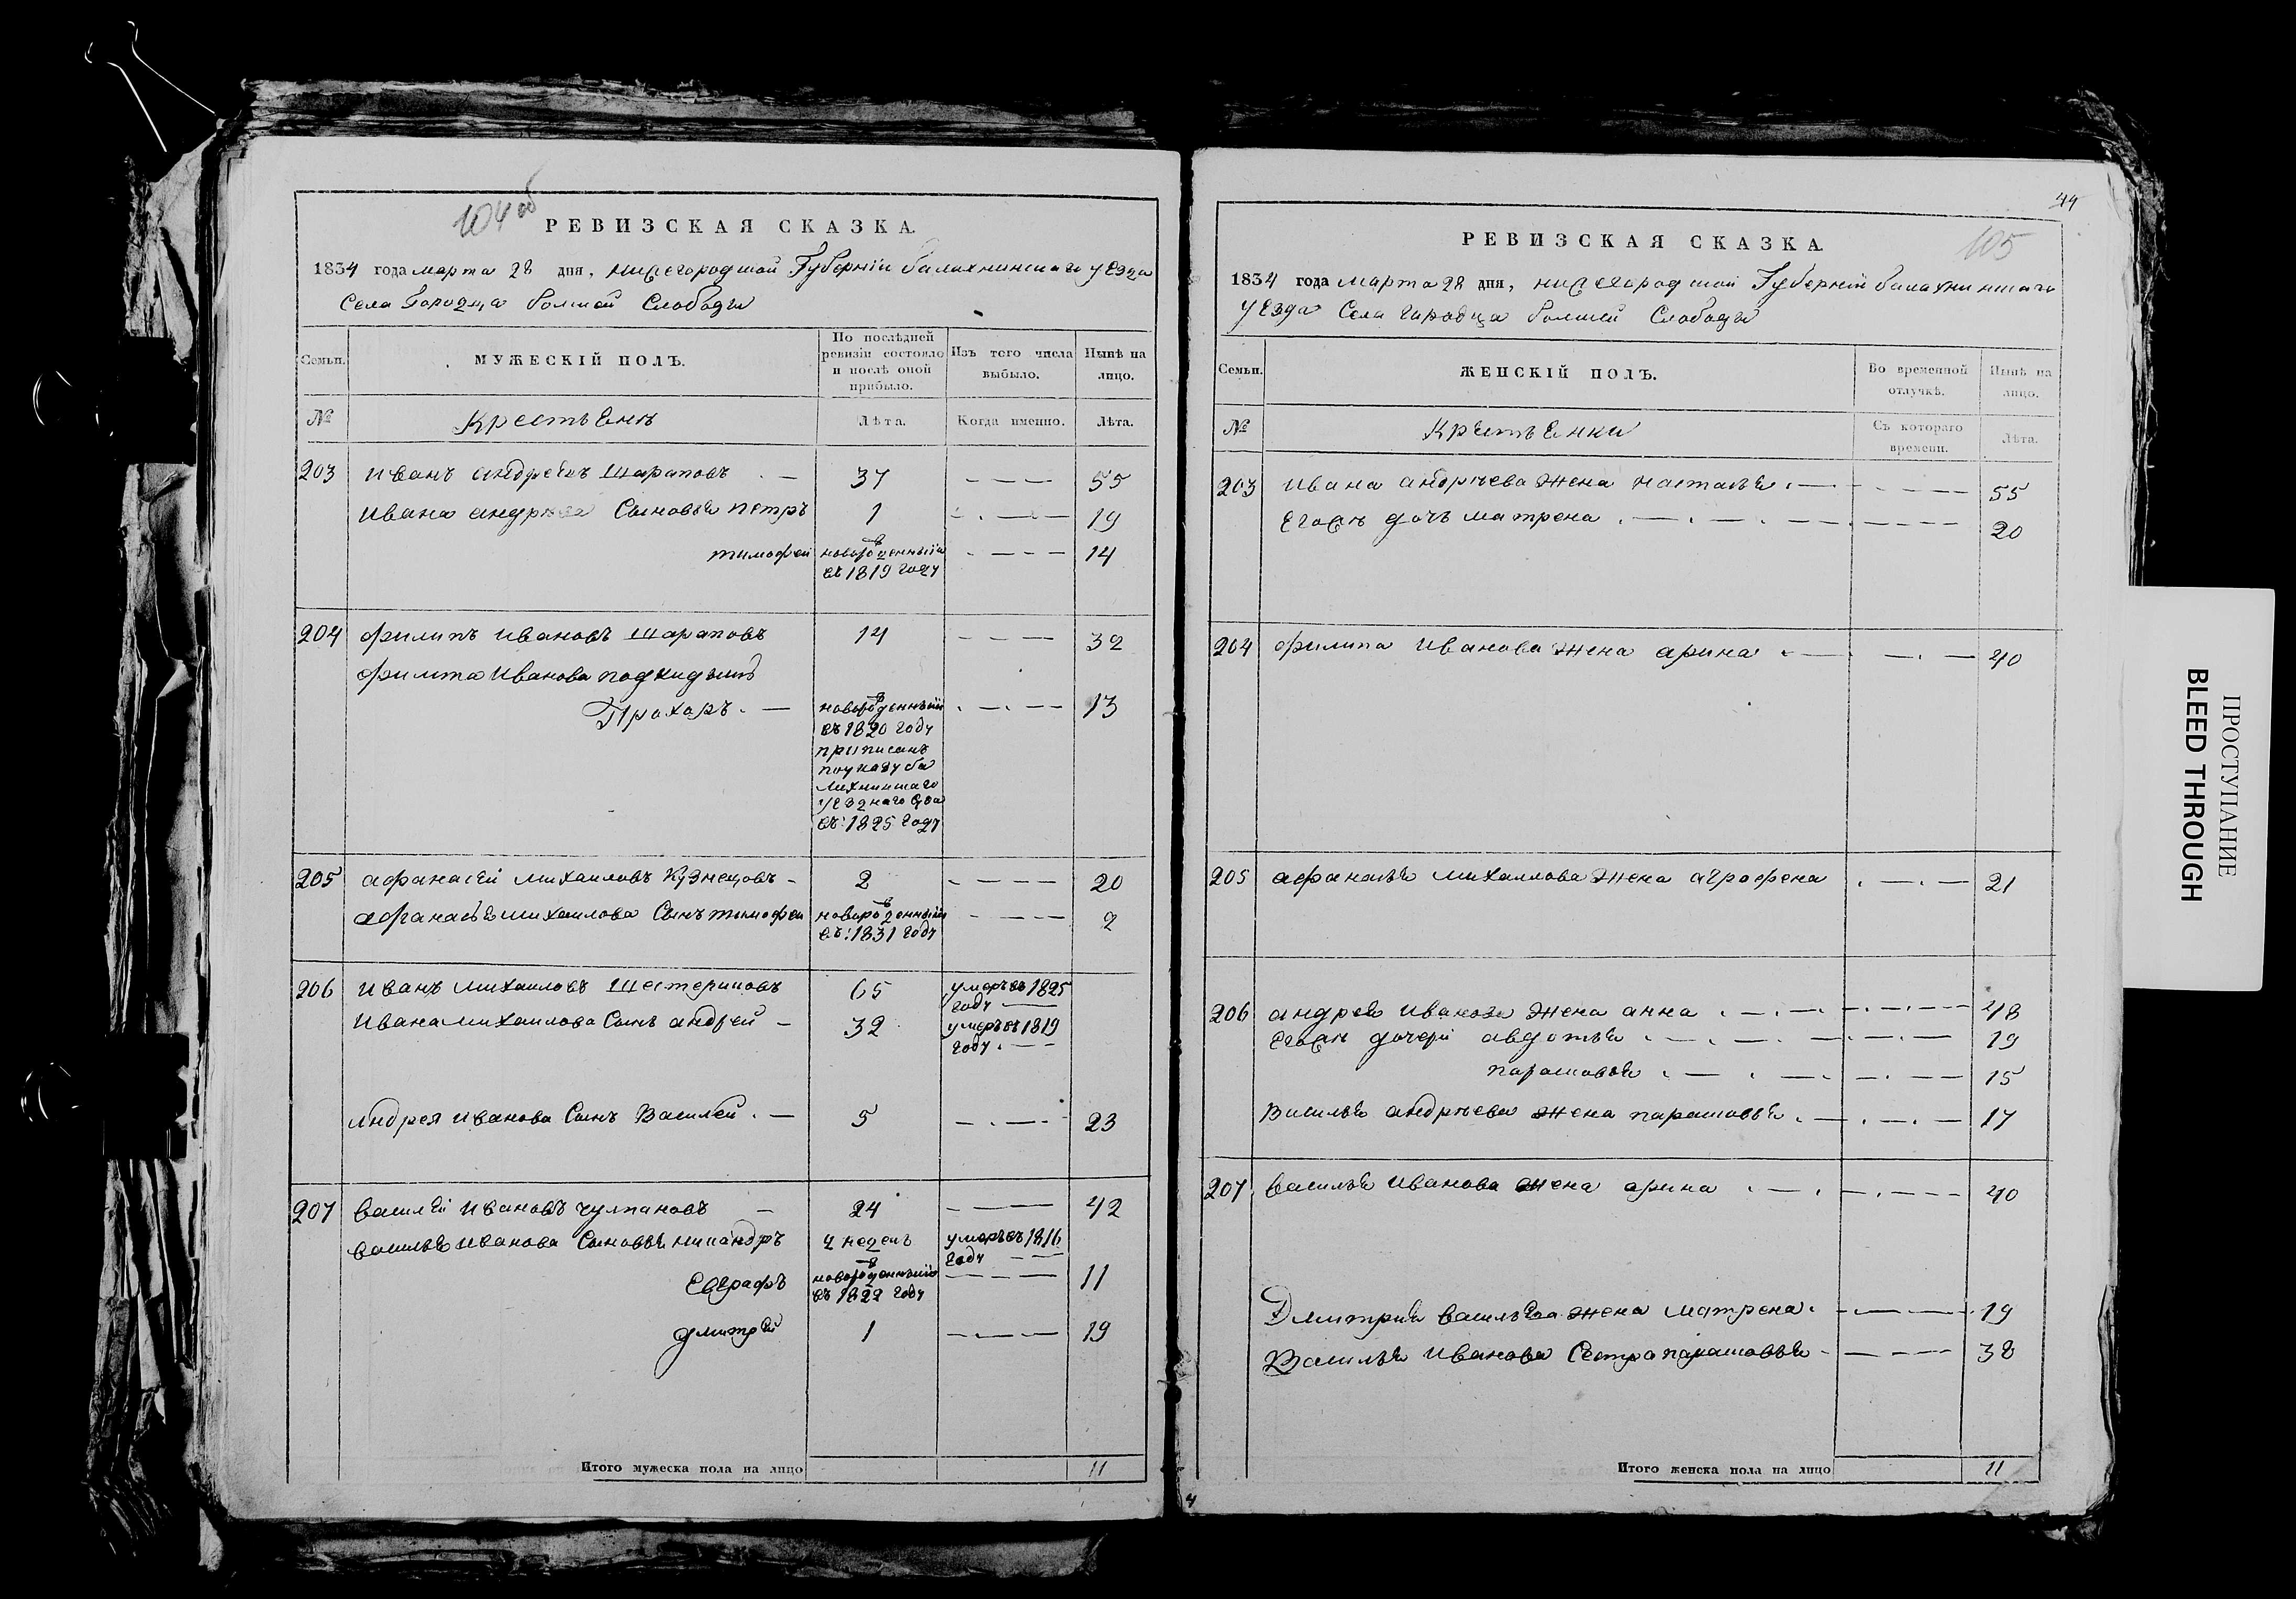 104 об
РЕВИЗСКАЯ СКАЗКА.
1834 года марта 28 дня, нижегородской Губерніи балахнинскаго уезда
Села Городца болшой Слободы
Семьи.
МУЖЕСКІЙ ПОЛЪ.
По послѣдней ревизіи состояло и послѣ оной прибыло.
Изъ того числа выбыло.
Нынѣ на лицо.
№
Крестьенъ
Лѣта.
Когда именно.
Лѣта.
203 иванъ андреевъ шараповъ 37 55
ивана андрѣева Сыновья петръ 1 19
тимофей новорожденный 14
въ 1819 году
204 филипъ ивановъ шараповъ 14 32
филипа иванова подкидышъ
Прохоръ новорожденный 13
въ 1820 году
приписанъ
поуказу ба
лахнинскаго
уезднаго Суда
въ: 1825 году
205 афанасей михаиловъ Кузнецовъ 2 20
афанасья михаилова Сынъ тимофеи новорожденный 2
въ: 1831 году
206 иванъ михаиловъ шестериковъ 65 умеръ въ 1825
году
ивана михаилова Сынъ андрей 32 умеръ въ 1819
году
андрея иванова Сынъ Василей 5 23
207 василей ивановъ чулпановъ 24 42
василья иванова Сыновья никандръ 4 недель умеръ въ 1816
году
Евграфъ новорожденный 11
въ 1822 году
дмитрей 1 19
Итого мужеска пола на лицо 11
44
105
РЕВИЗСКАЯ СКАЗКА.
1834 года марта 28 дня, нижегородской Губерніи балахнинскаго
уезда Села городца болшей Слободы
Семьи.
ЖЕНСКІЙ ПОЛЪ.
Во временной отлучкѣ.
Нынѣ на лицо.
№
Крестьенки
Съ котораго времени.
Лѣта.
203 ивана андрѣева жена насталья 55
Егожъ дочь матрена 20
204 филипа иванова жена арина 40
205 афанасья михаилова жена аграфена 21
206 андрея иванова жена анна 48
Егожъ дочери авдотья 19
парасковья 15
василья андрѣева жена парасковья 17
207 василья иванова жена арина 40
Дмитрия васильева жена матрена 19
Василья иванова Сестра парасковья 38
Итого женска пола на лицо 11
4
ПРОСТУПАНИЕ
BLEED THROUGH